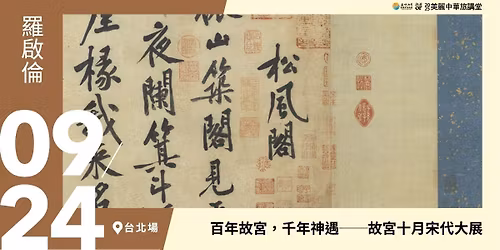 羅啟倫
09/24
台北場
美麗中華旅講堂
松風閣
山築閣見
夜闌箕斗
屋椽我來名
百年故宮，千年神遇──故宮十月宋代大展